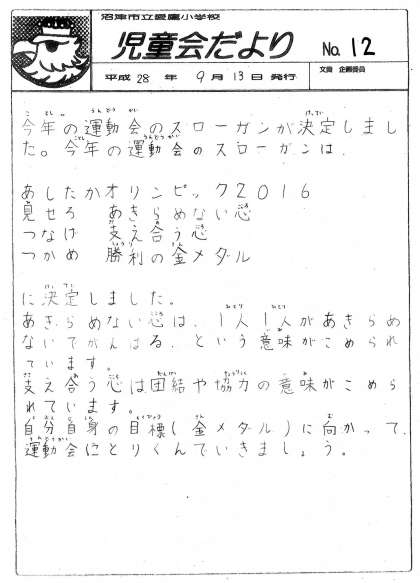 沼津市立愛鷹小学校
児童会だより No.12
平成28年9月13日発行 文責 企画委員
今年の運動会のスローガンが決定しまし
た。今年の運動会のスローガンは、
あしたかオリンピック2016
見せろ あきらめない心
つなげ 支え合う心
つかめ 勝利の金メダル
に決定しました。
あきらめない心は、1人1人があきらめ
ないでがんばる、という意味がこめられ
ています。
支え合う心は団結や協力の意味がこめら
れています。
自分自身の目標(金メダル)に向かって、
運動会にとりくんでいきましょう。